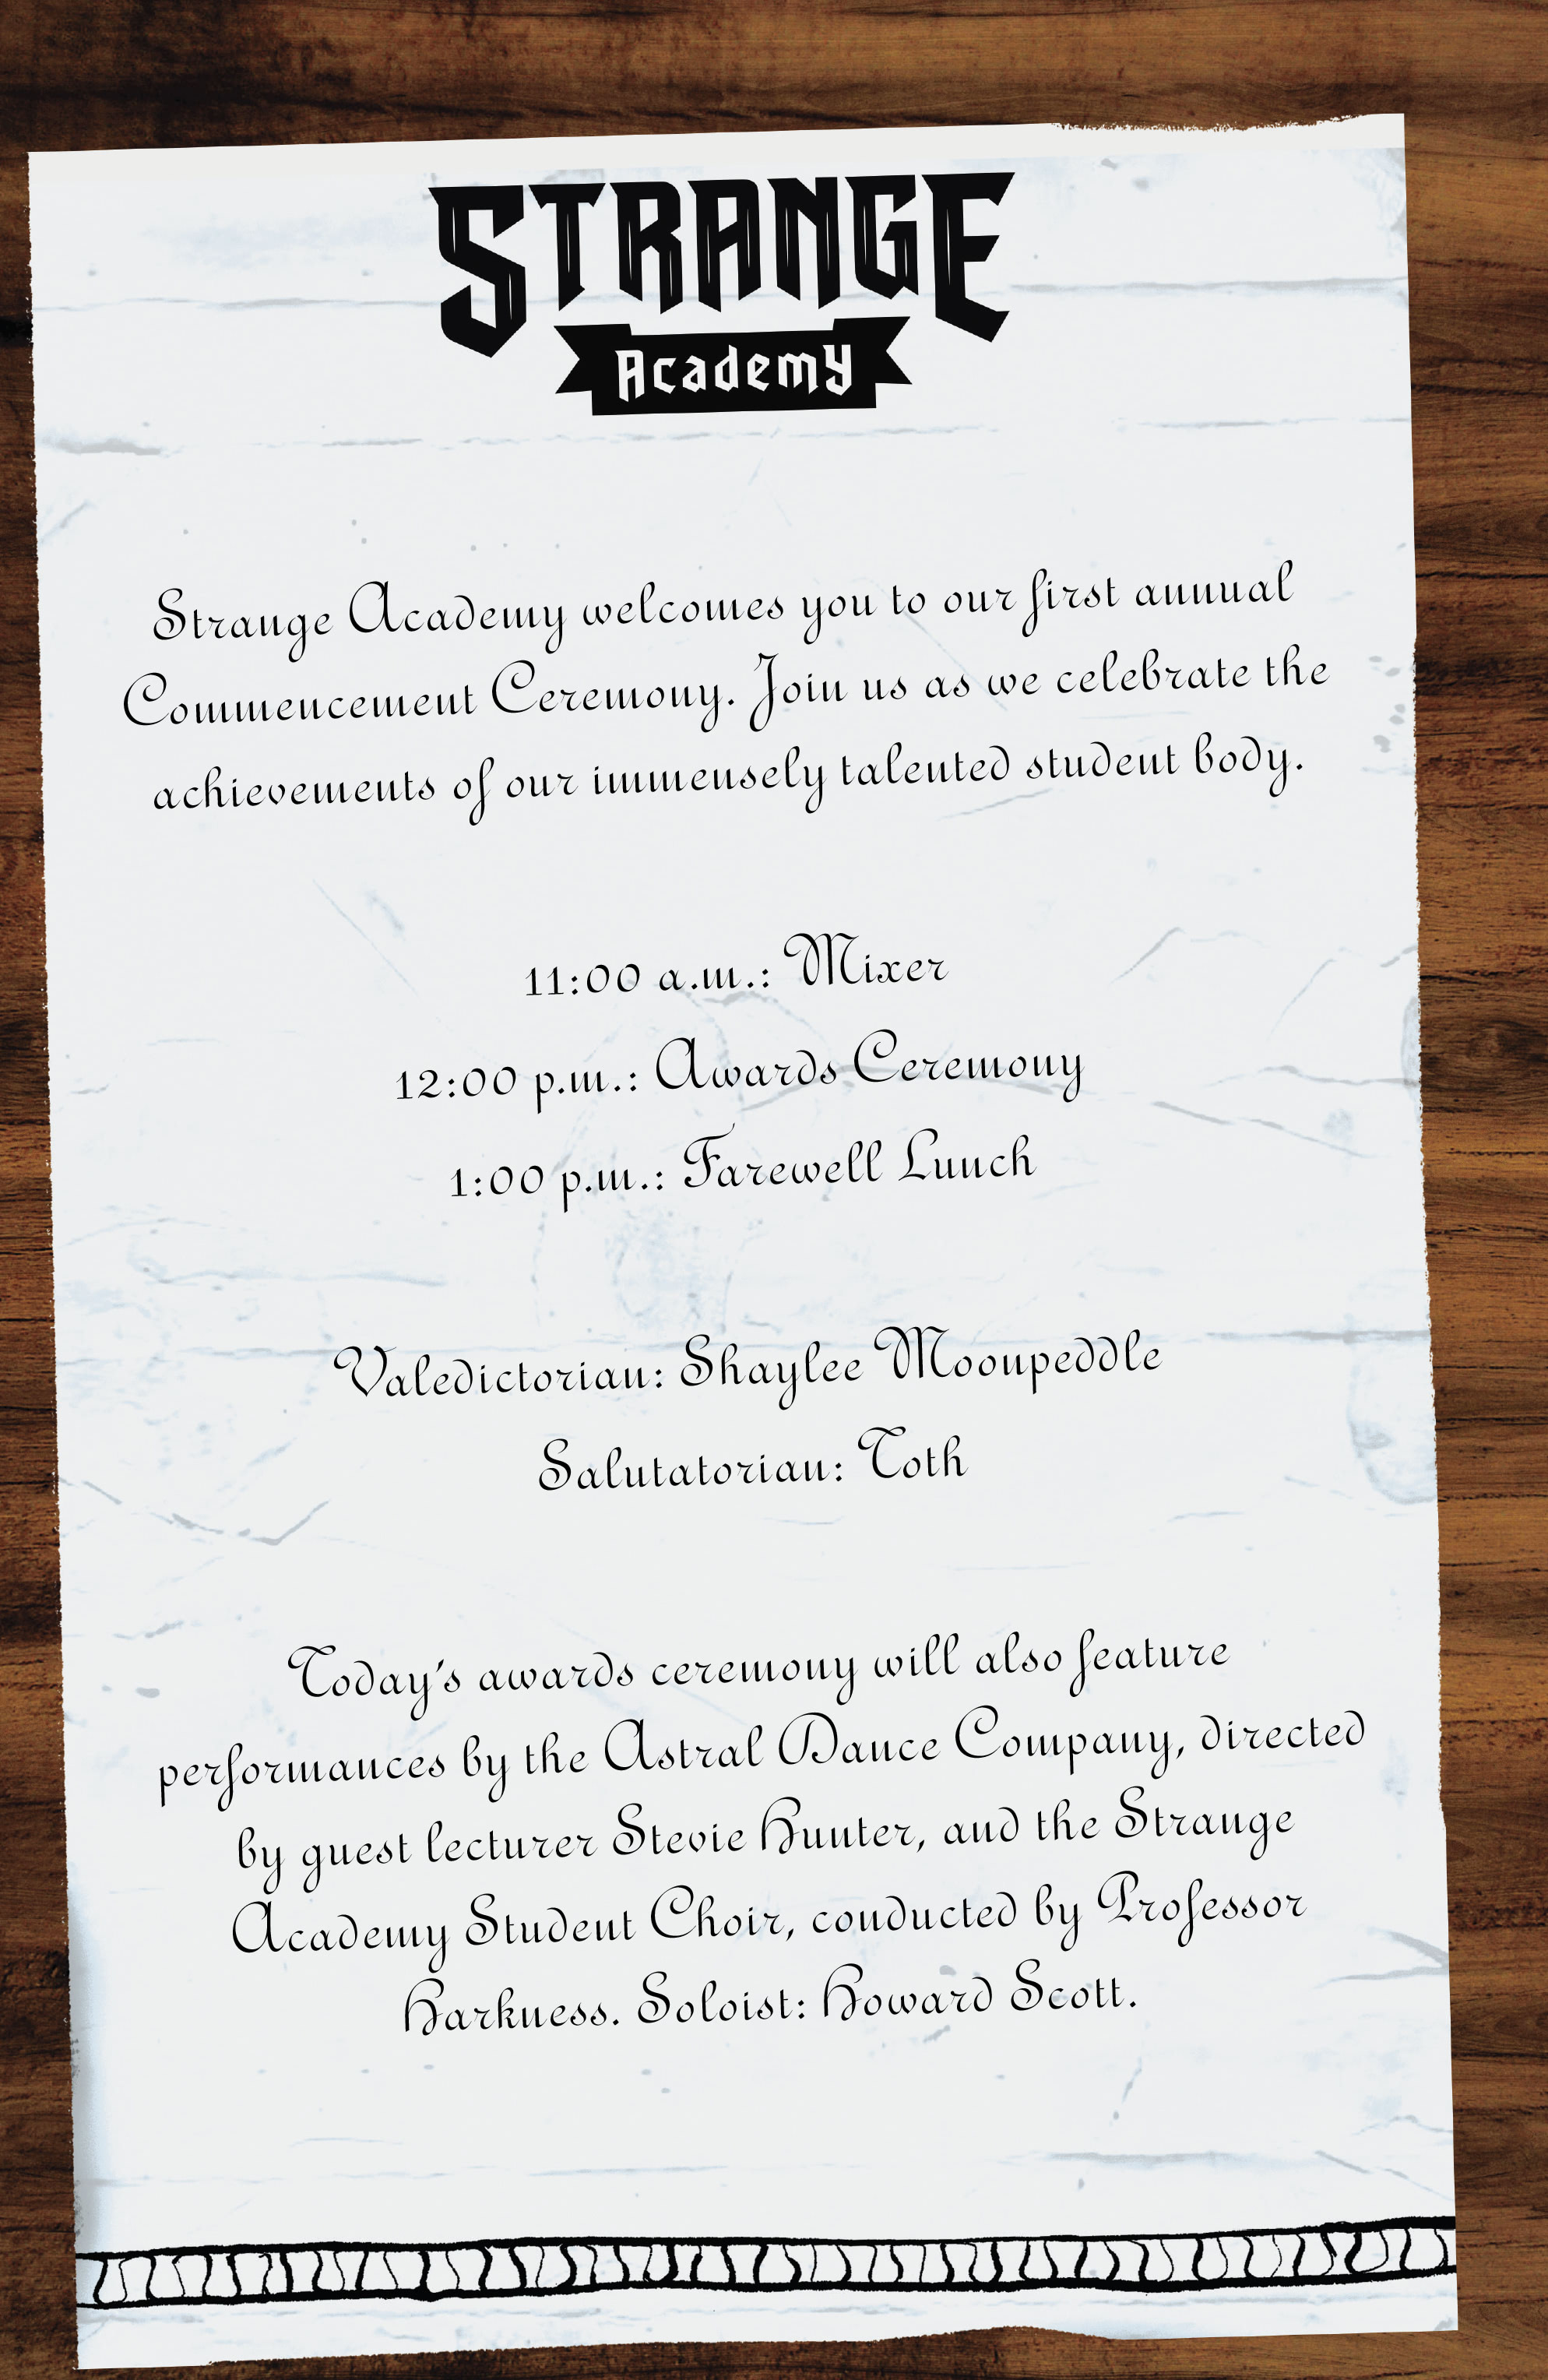 STRANGE
Academy
Strange Academy welcomes you to our first annual
Commencement Ceremony. Join us as we celebrate the
achievements of our immensely talented student body.
11:00 a.m.: Mixer
12:00 p.m.: Awards Ceremony
1:00 p.m.: Farewell Lunch
Valedictorian: Shaylee Moonpeddle
Salutatorian: Toth
Today's awards ceremony will also feature
performances by the Astral Dance Company, directed
by guest lecturer Stevie Hunter, and the Strange
Academy Student Choir, conducted by Professor
Harkness. Soloist: Howard Scott.